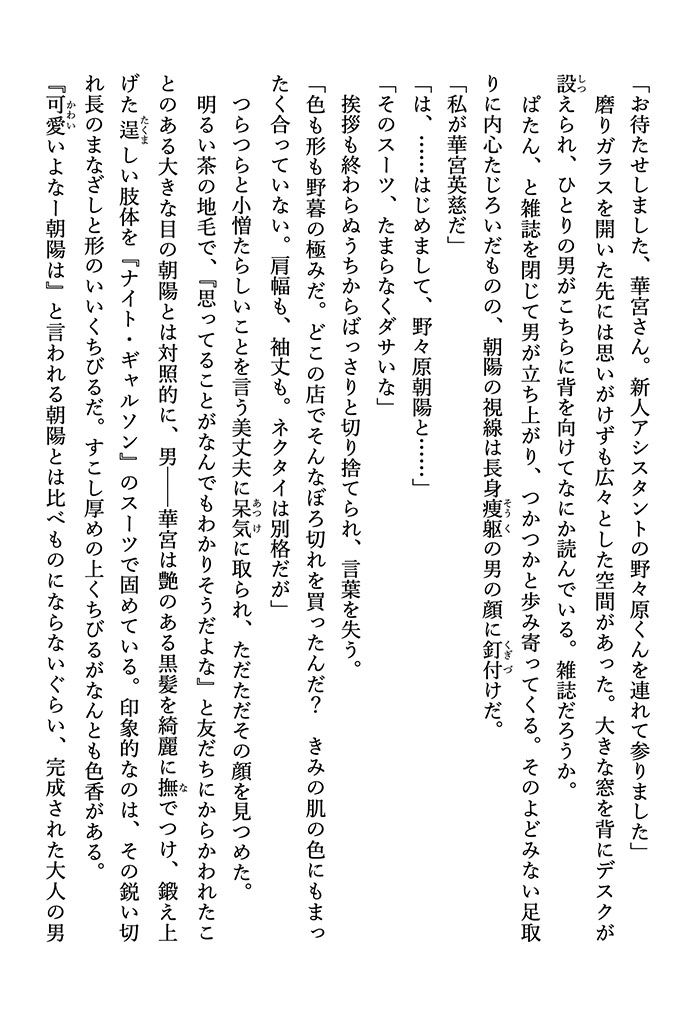 「お待たせしました、華宮さん。新人アシスタントの野々原くんを連れて参りました」
磨りガラスを開いた先には思いがけずも広々とした空間があった。大きな窓を背にデスクが
設えられ、ひとりの男がこちらに背を向けてなにか読んでいる。雑誌だろうか。
ぱたん、と雑誌を閉じて男が立ち上がり、つかつかと歩み寄ってくる。そのよどみない足取
りに内心たじろいだものの、朝陽の視線は長身痩躯の男の顔に釘付けだ。
「私が華宮英慈だ」
「は、……はじめまして、野々原朝陽と……」
「そのスーツ、たまらなくダサいな」
挨拶も終わらぬうちからばっさりと切り捨てられ、言葉を失う。
「色も形も野暮の極みだ。どこの店でそんなぼろ切れを買ったんだ？　きみの肌の色にもまっ
たく合っていない。肩幅も、袖丈も。ネクタイは別格だが」
つらつらと小憎たらしいことを言う美丈夫に呆気に取られ、ただただその顔を見つめた。
明るい茶の地毛で、『思ってることがなんでもわかりそうだよな』と友だちにからかわれたこ
とのある大きな目の朝陽とは対照的に、男――華宮は艶のある黒髪を綺麗に撫でつけ、鍛え上
げた逞しい肢体を『ナイト・ギャルソン』のスーツで固めている。印象的なのは、その鋭い切
れ長のまなざしと形のいいくちびるだ。すこし厚めの上くちびるがなんとも色香がある。
『可愛いよなー朝陽は』と言われる朝陽とは比べものにならないぐらい、完成された大人の男